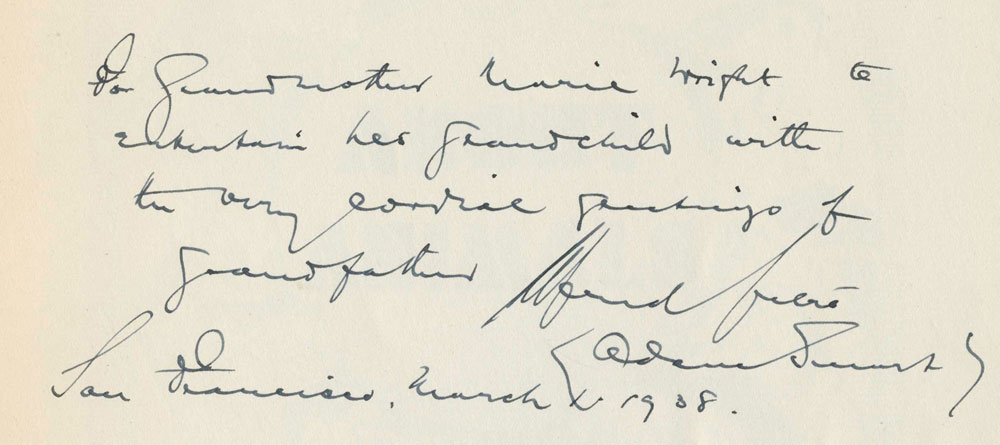 For Grandmother Marie Wright to
entertain her grandchild with
the very cordial greetings of
grandfather Alfred
(Adam
San Francisco, March 1938.